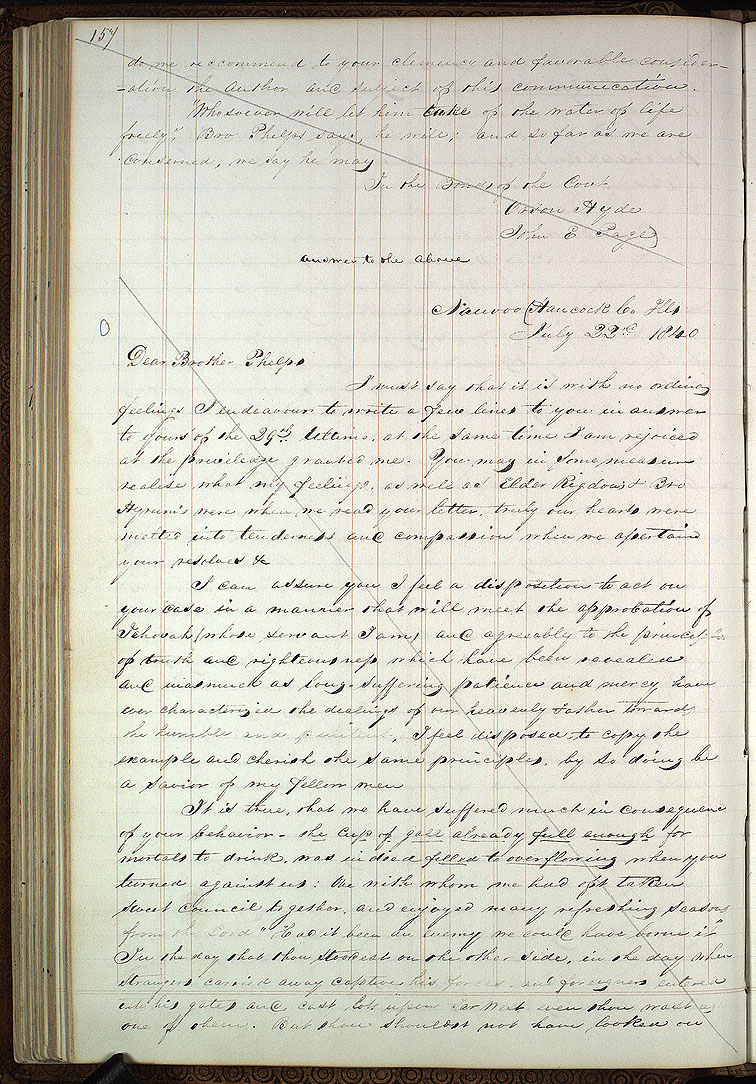 157
do we reccommend to your clemency and favorable consider-
-ation the Author and subject of this communication.
"Whosoever will let him take of the water of life
freely". Bro Phelps says, he will; and so far as we are
concerned, we say he may
In the Bonds of the Cov't
Orson Hyde
John E Page)
answer to the above
Nauvoo Hancock Co Ills
July 22nd 1840
O
Dear Brother Phelps
I must say that it is with no ordinary
feelings I endeavour to write a few lines to you in answer
to yours of the 29th Ultimo, at the same time I am rejoiced
at the priviledge granted me. You may in some measure
realise what my feelings, as well as Elder Rigdon's & Bro
Hyrum's were when we read your letter, truly our hearts were
melted into tenderness and compassion when we assertained
your resolves &c
I can assure you I feel a disposition to act on
your case in a manner that will meet the approbation of
Jehovah (whose servant I am) and agreeably to the principles
of truth and righteousness which have been revealed
and inasmuch as long-suffering patience and mercy have
ever characterized the dealings of our heavenly Father towards
the humble and penitent, I feel disposed to copy the
example and cherish the same principles, by so doing be
a Savior of my fellow men
It is true, that we have suffered much in consequence
of your behavior - the cup of gall already full enough for
mortals to drink, was indeed filled to overflowing when you
turned against us: One with whom we had oft taken
sweet council together, and enjoyed many refreshing seasons
from the Lord "Had it been an enemy we could have borne it"
In the day that thou stoodest on the other side, in the day when
strangers carried away captive his forces, and foreigners entered
into his gates and cast lots upon Far West even thou wast as
one of them. But thou shouldst not have looked on